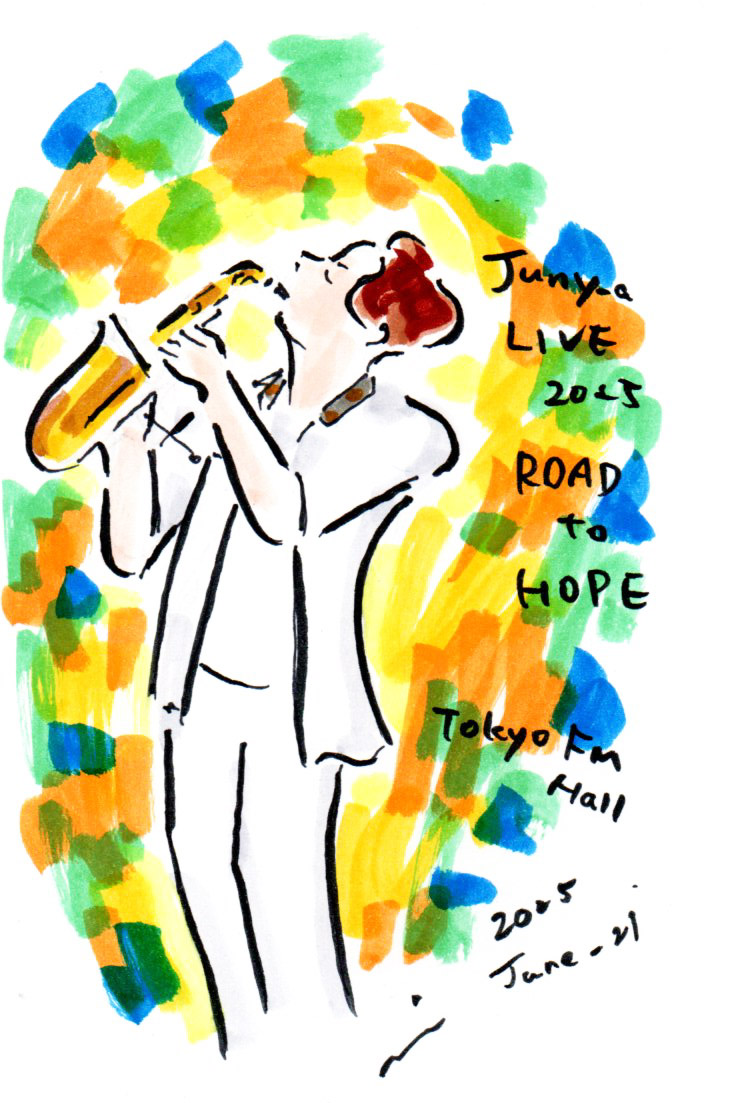 Juny-a
LIVE
2025
ROAD
to
HOPE
Tokyo FM
Hall
2025
June-21